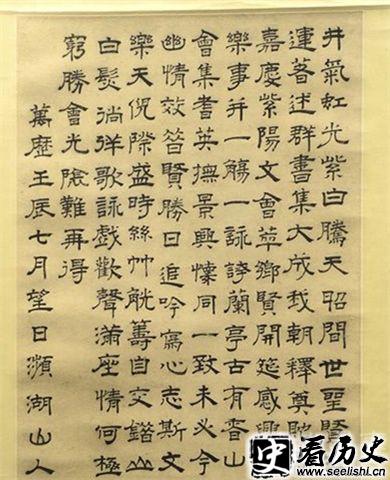 井氣虹光紫白騰天昭間世聖賢
運著述群書集大成我朝釋奠
嘉慶紫陽文會萃鄉賢開筵感興
樂事并一觴一詠誇蘭亭古有香山
會集耆英撫景興懷同一致未必今
幽情效昔賢勝日追吟寫心志斯文
樂天倪際盛時絲竹觥籌自交錯山
白髮徜徉歌詠戲歡聲滿座情何極
窮勝會光陰難再得
萬歷壬辰七月望日瀕湖山人
史看历史
www.seelishi.cn